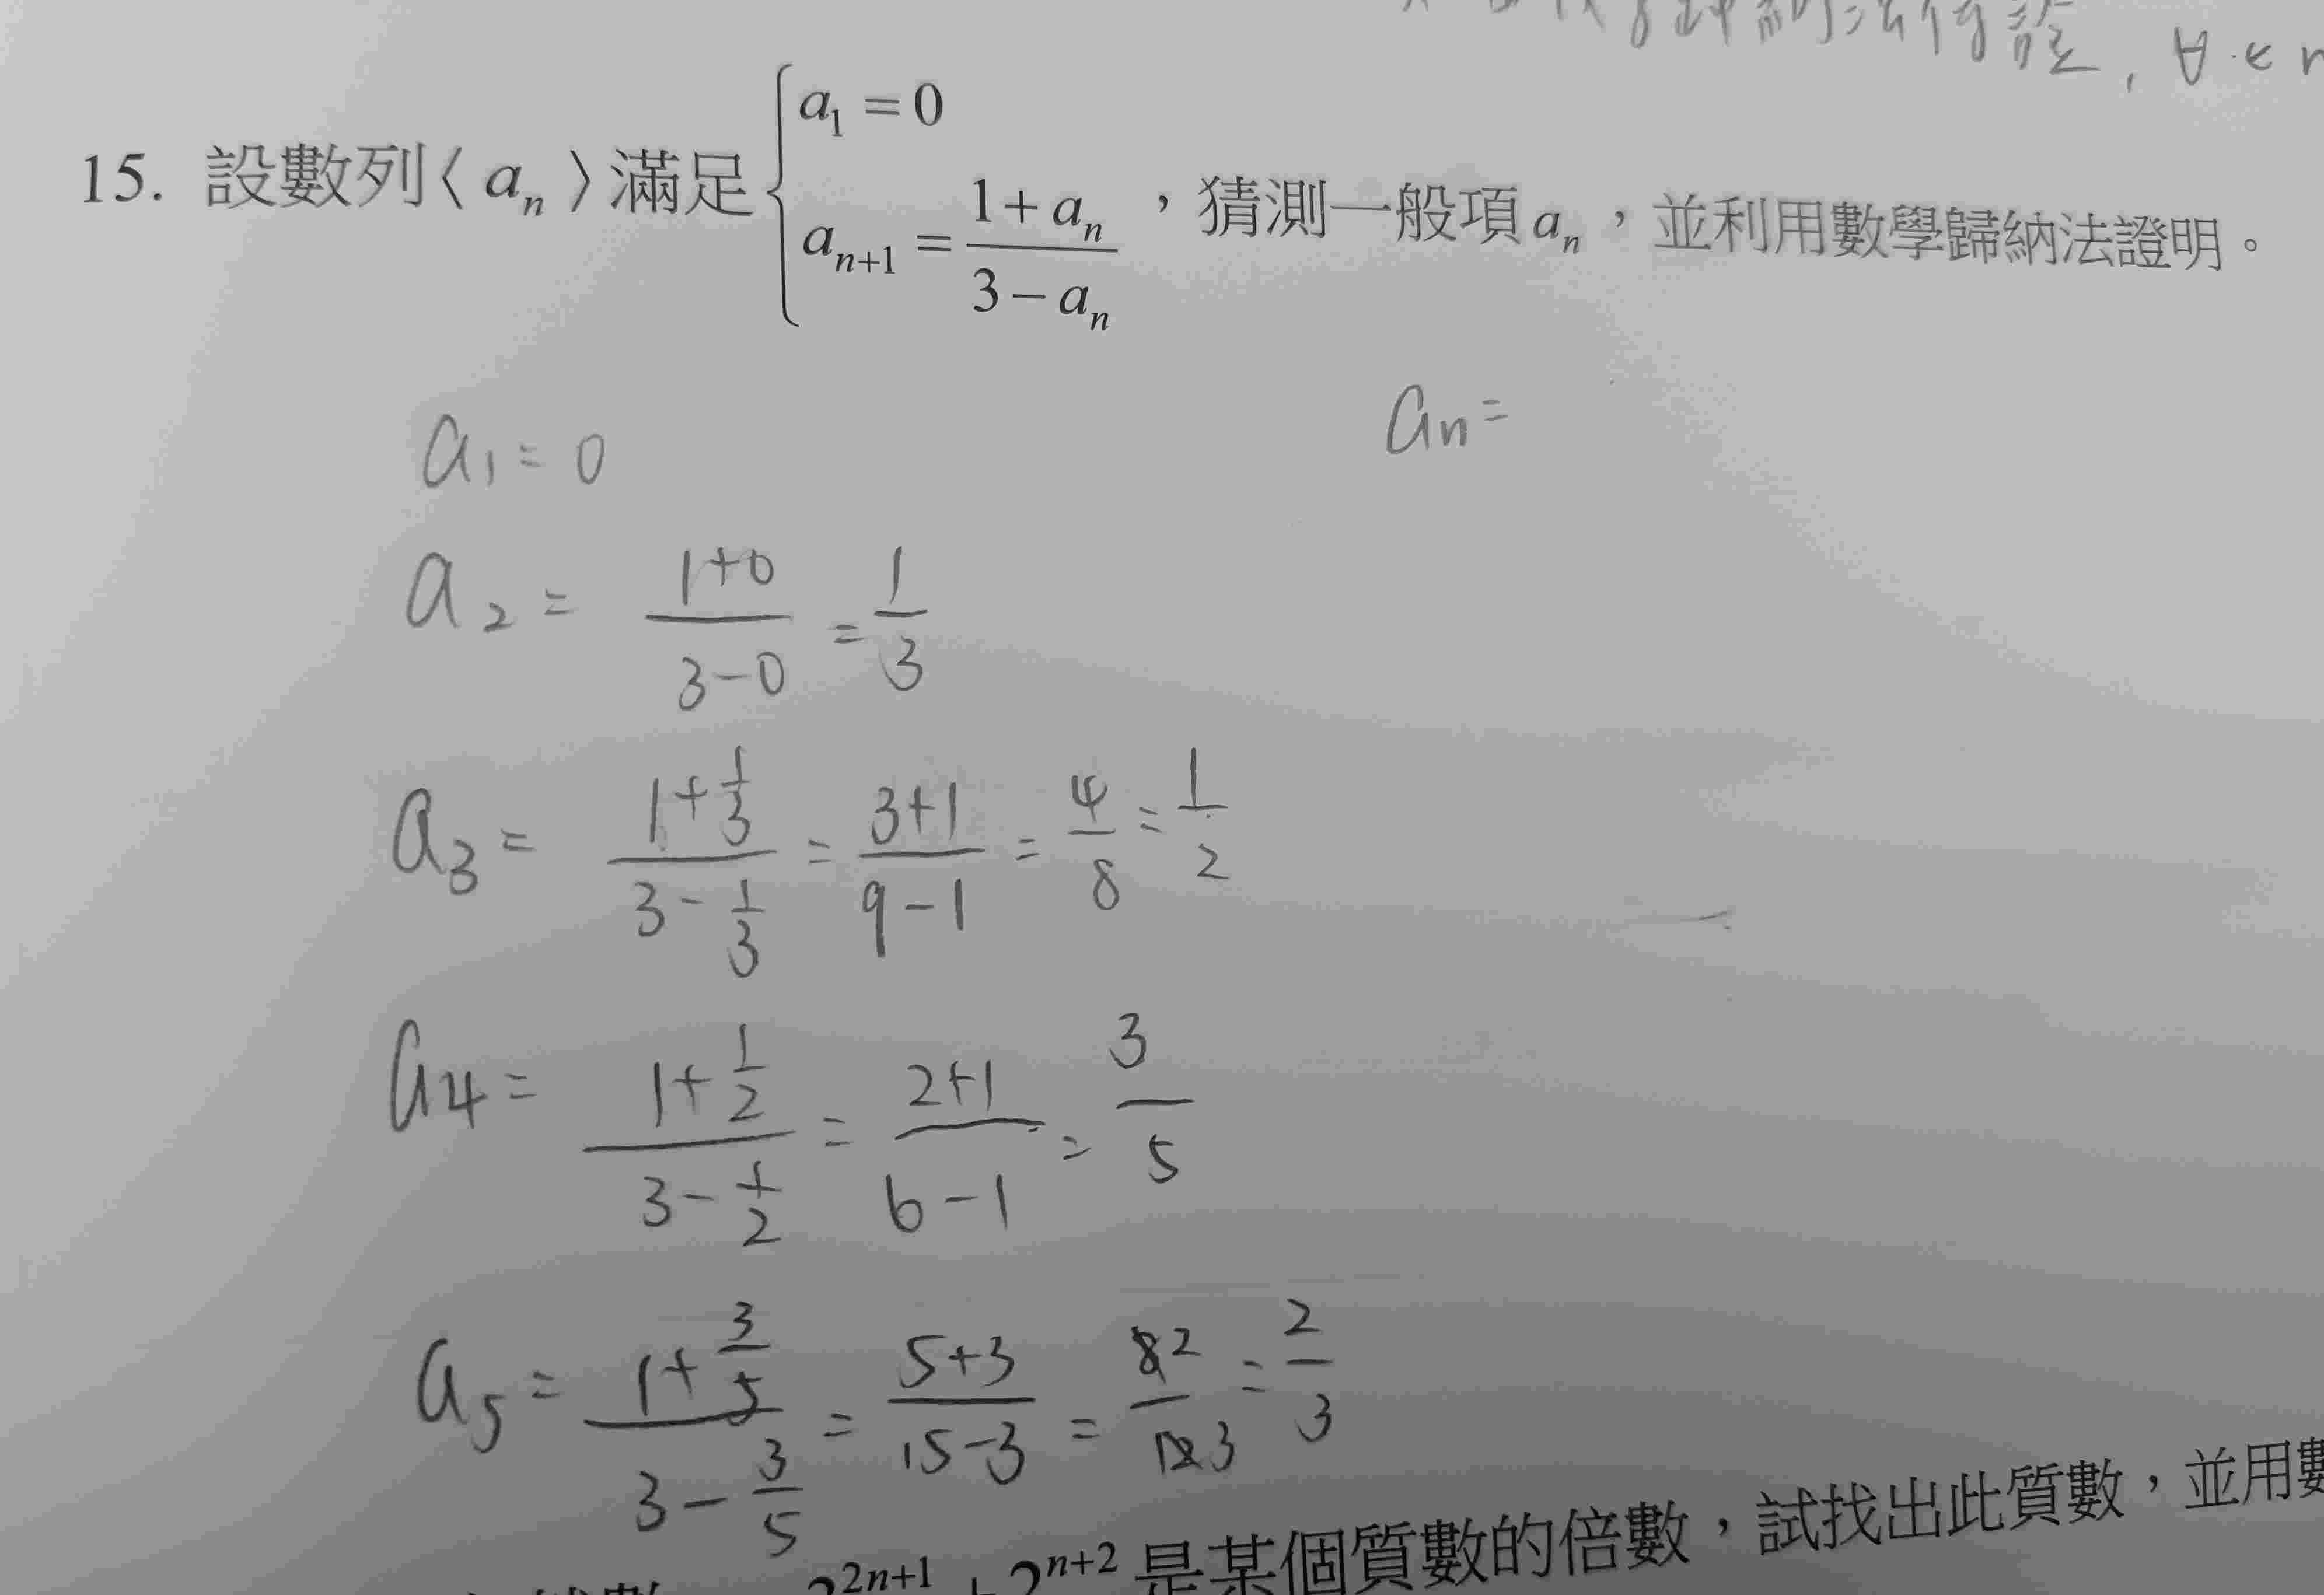 歸納法得證, ∀ ∈ n
15. 設數列⟨ aₙ ⟩滿足 { a₁ = 0 ; aₙ₊₁ = (1 + aₙ)/(3 − aₙ) ，猜測一般項 aₙ ，並利用數學歸納法證明。
a₁ = 0
aₙ =
a₂ = (1+0)/(3−0) = 1/3
a₃ = (1+1/3)/(3−1/3) = (3+1)/(9−1) = 4/8 = 1/2
a₄ = (1+1/2)/(3−1/2) = (2+1)/(6−1) = 3/5
a₅ = (1+3/5)/(3−3/5) = (5+3)/(15−3) = 8 2/12 3 = 2/3
2n+1 + 2ⁿ⁺² 是某個質數的倍數，試找出此質數，並用數